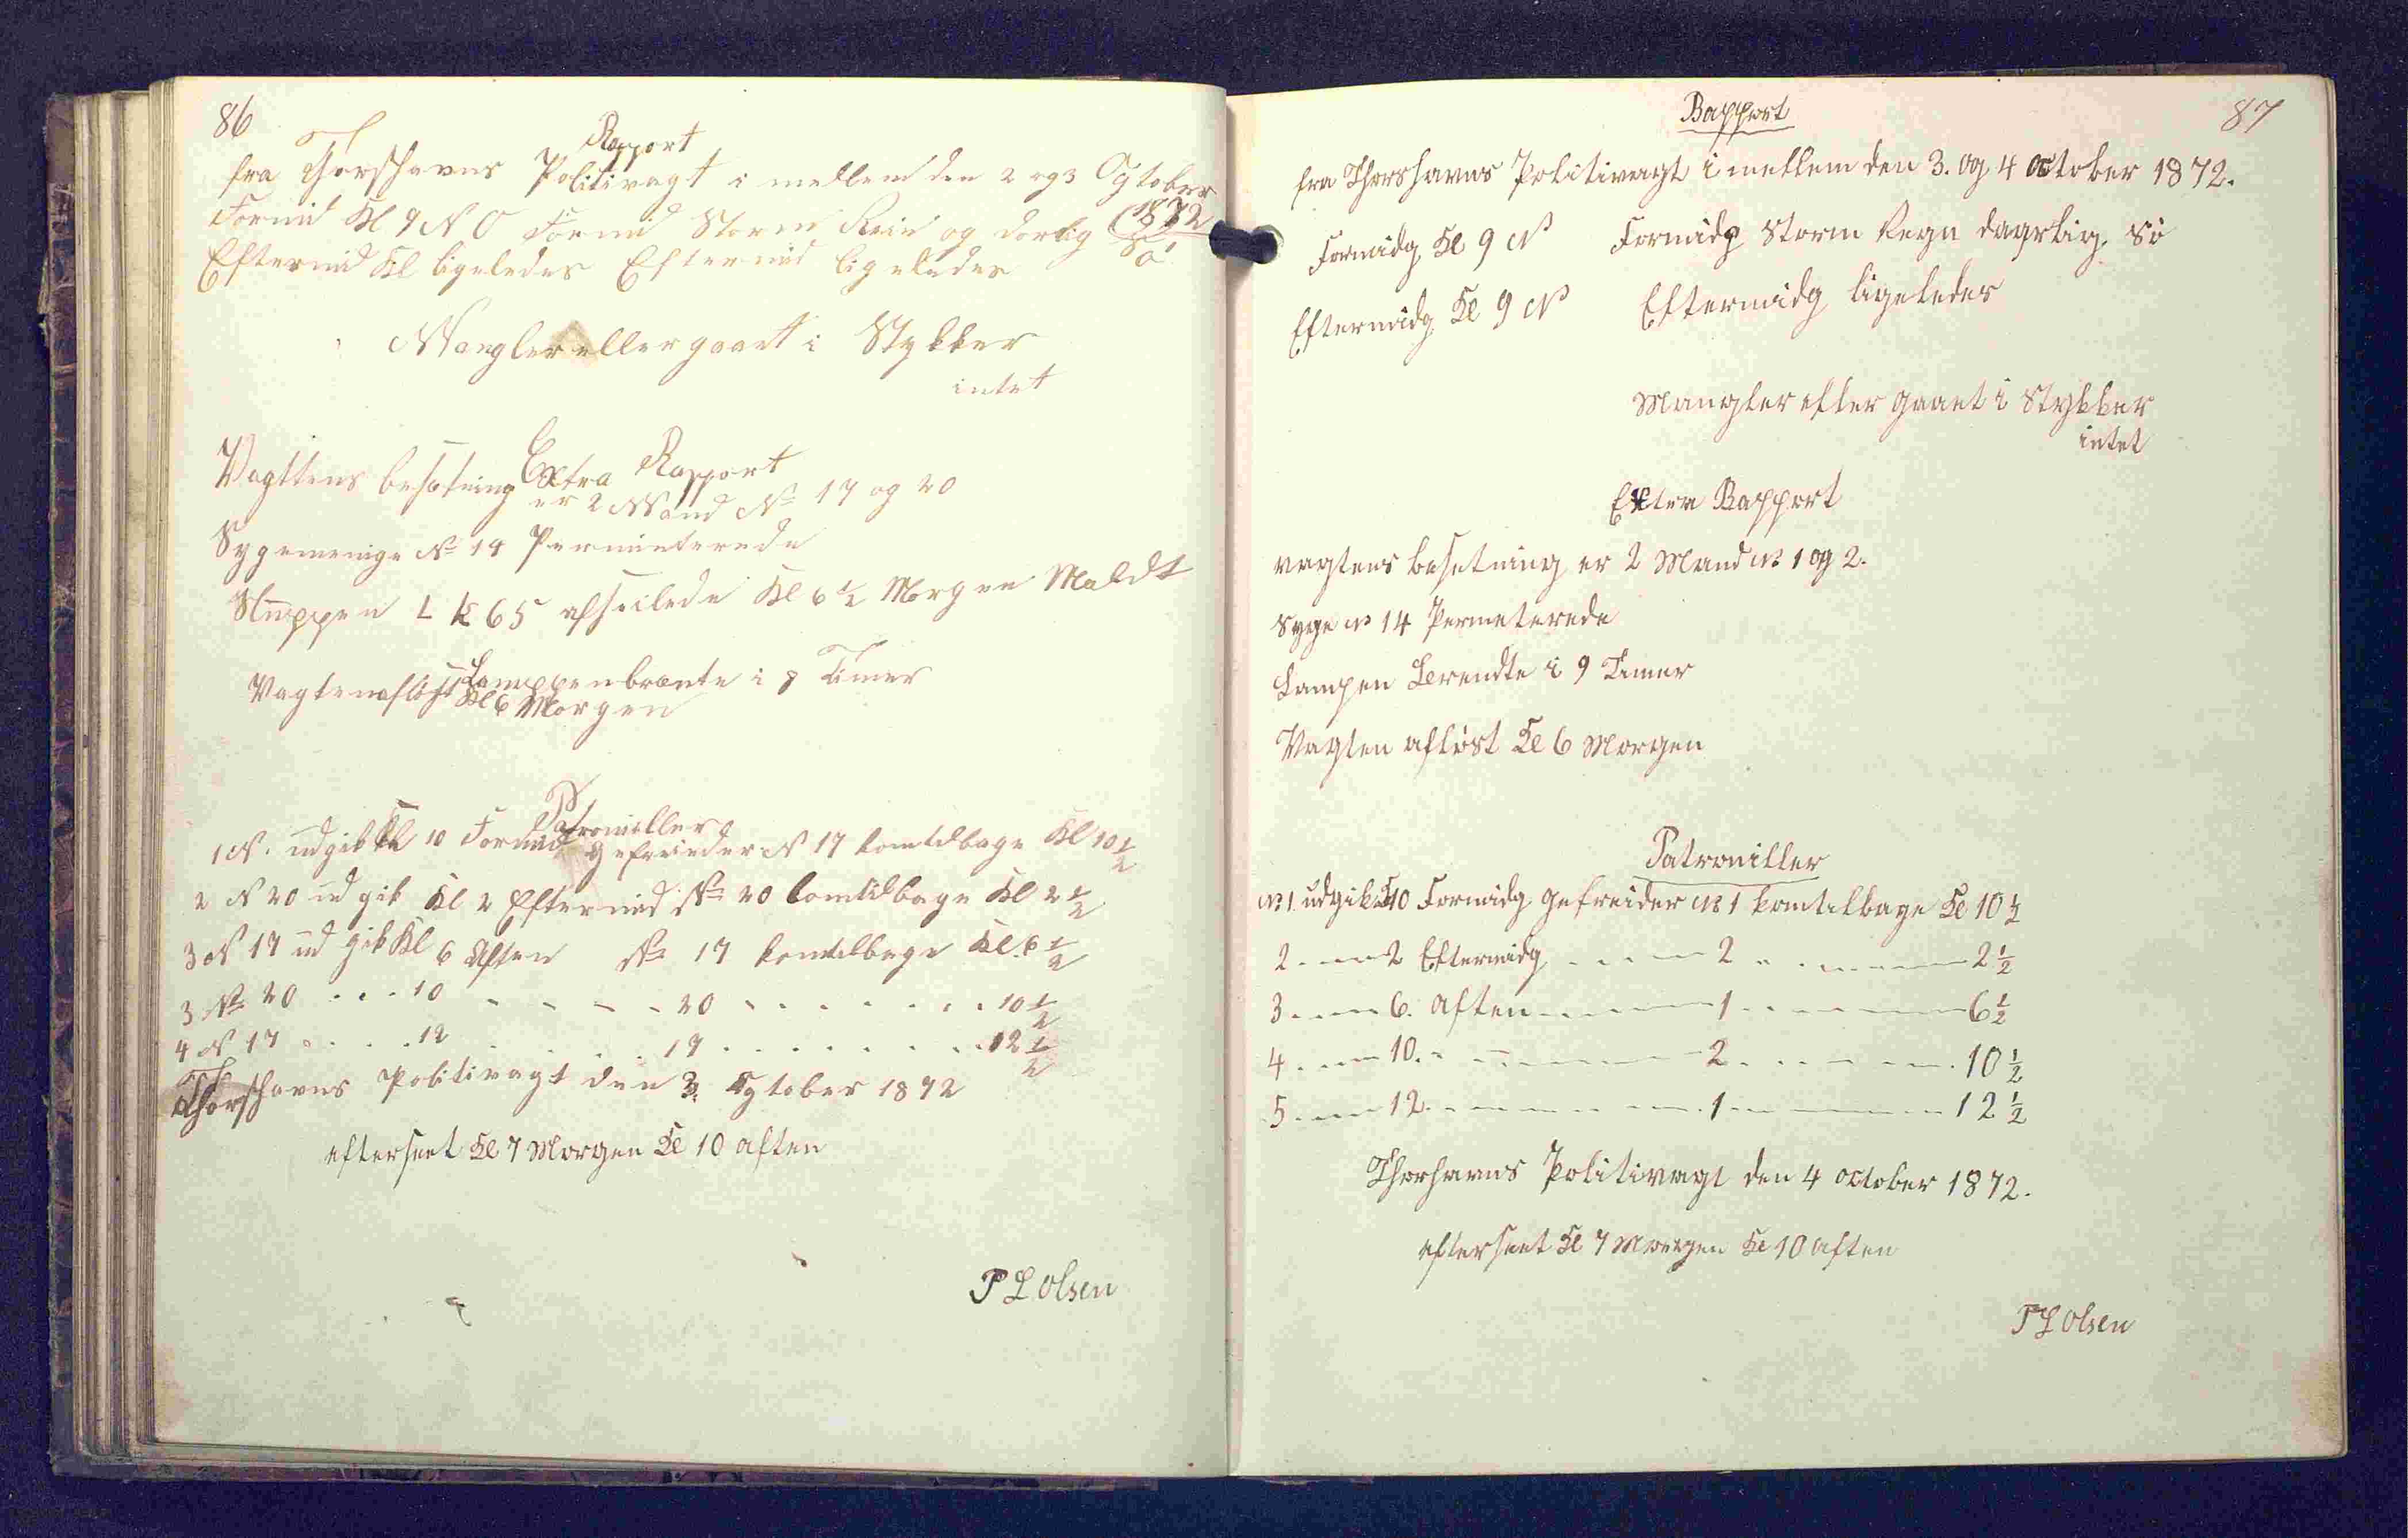 86
Rapport
fra Thorshavns Politivagt i mellem den 2 og 3 Ogtober
1872
Formid Kl 9 N O Formid Storm Rein og dorlig Sö
Eftermid Kl ligeledes Eftermid ligeledes
Mangler eller gaaet i Stykker
intet
Extra Rapport
Vagttens besætning er 2 Mand No 17 og 20
Sygemenige No 14 Permiterede
Sluppen L K 65 afseilede Kl 6 1/2 Morgen Maldt
Lamppen brænte i 8 Timer
Vagten afløst Kl 6 Morgen
Patrouiller
1 N. udgik Kl 10 Formid Gefreider N 17 kom tilbage Kl 10 1/2
2 N 20 udgik Kl 2 Eftermid No 20 kom tilbage Kl 2 1/2
3 N 17 udgik Kl 6 Aften No 17 kom tilbage Kl. 6 1/2
3 No 20 . . . 10 - - - - 20 - - - - - - - 10 1/2
4 N 17 . . . . 12 . . . . 17 . . . . . . . . 12 1/2
Thorshavns Politivagt den 3. Ogtober 1872
efterseet Kl 7 Morgen Kl 10 aften
P L Olsen
87
Rapport
fra Thorshavns Politivagt i mellem den 3. og 4 October 1872.
Formidg Kl 9 N Formidg Storm Regn daarlig. Sö
Eftermidg Kl 9 N Eftermidg ligeledes
Mangler eller gaaet i Stykker
intet
Extra Rapport
vagtens besetning er 2 Mand No 1 og 2.
Syge No 14 Permeterede
Lampen brendte i 9 Timer
Vagten afløst Kl 6 Morgen
Patrouiller
No 1 udgik Kl 10 Formidg gefreider No 1 kom tilbage Kl 10 1/2
2 . - - - 2 Eftermidg - - - - 2 - - - - - 2 1/2
3 - - - - 6. aften - - - - - 1 - - - - - 6 1/2
4 . - - - 10. - - - - - - 2 . - - - - - . 10 1/2
5 . - - - 12. - - - - - - . 1 - - - - - - 12 1/2
Thorhavns Politivagt den 4 October 1872.
efterseet Kl 7 Morgen Kl 10 aften
P L Olsen